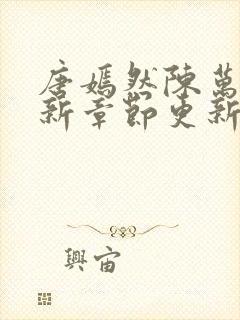 唐嫣然陳萬
新章節更新
興宙